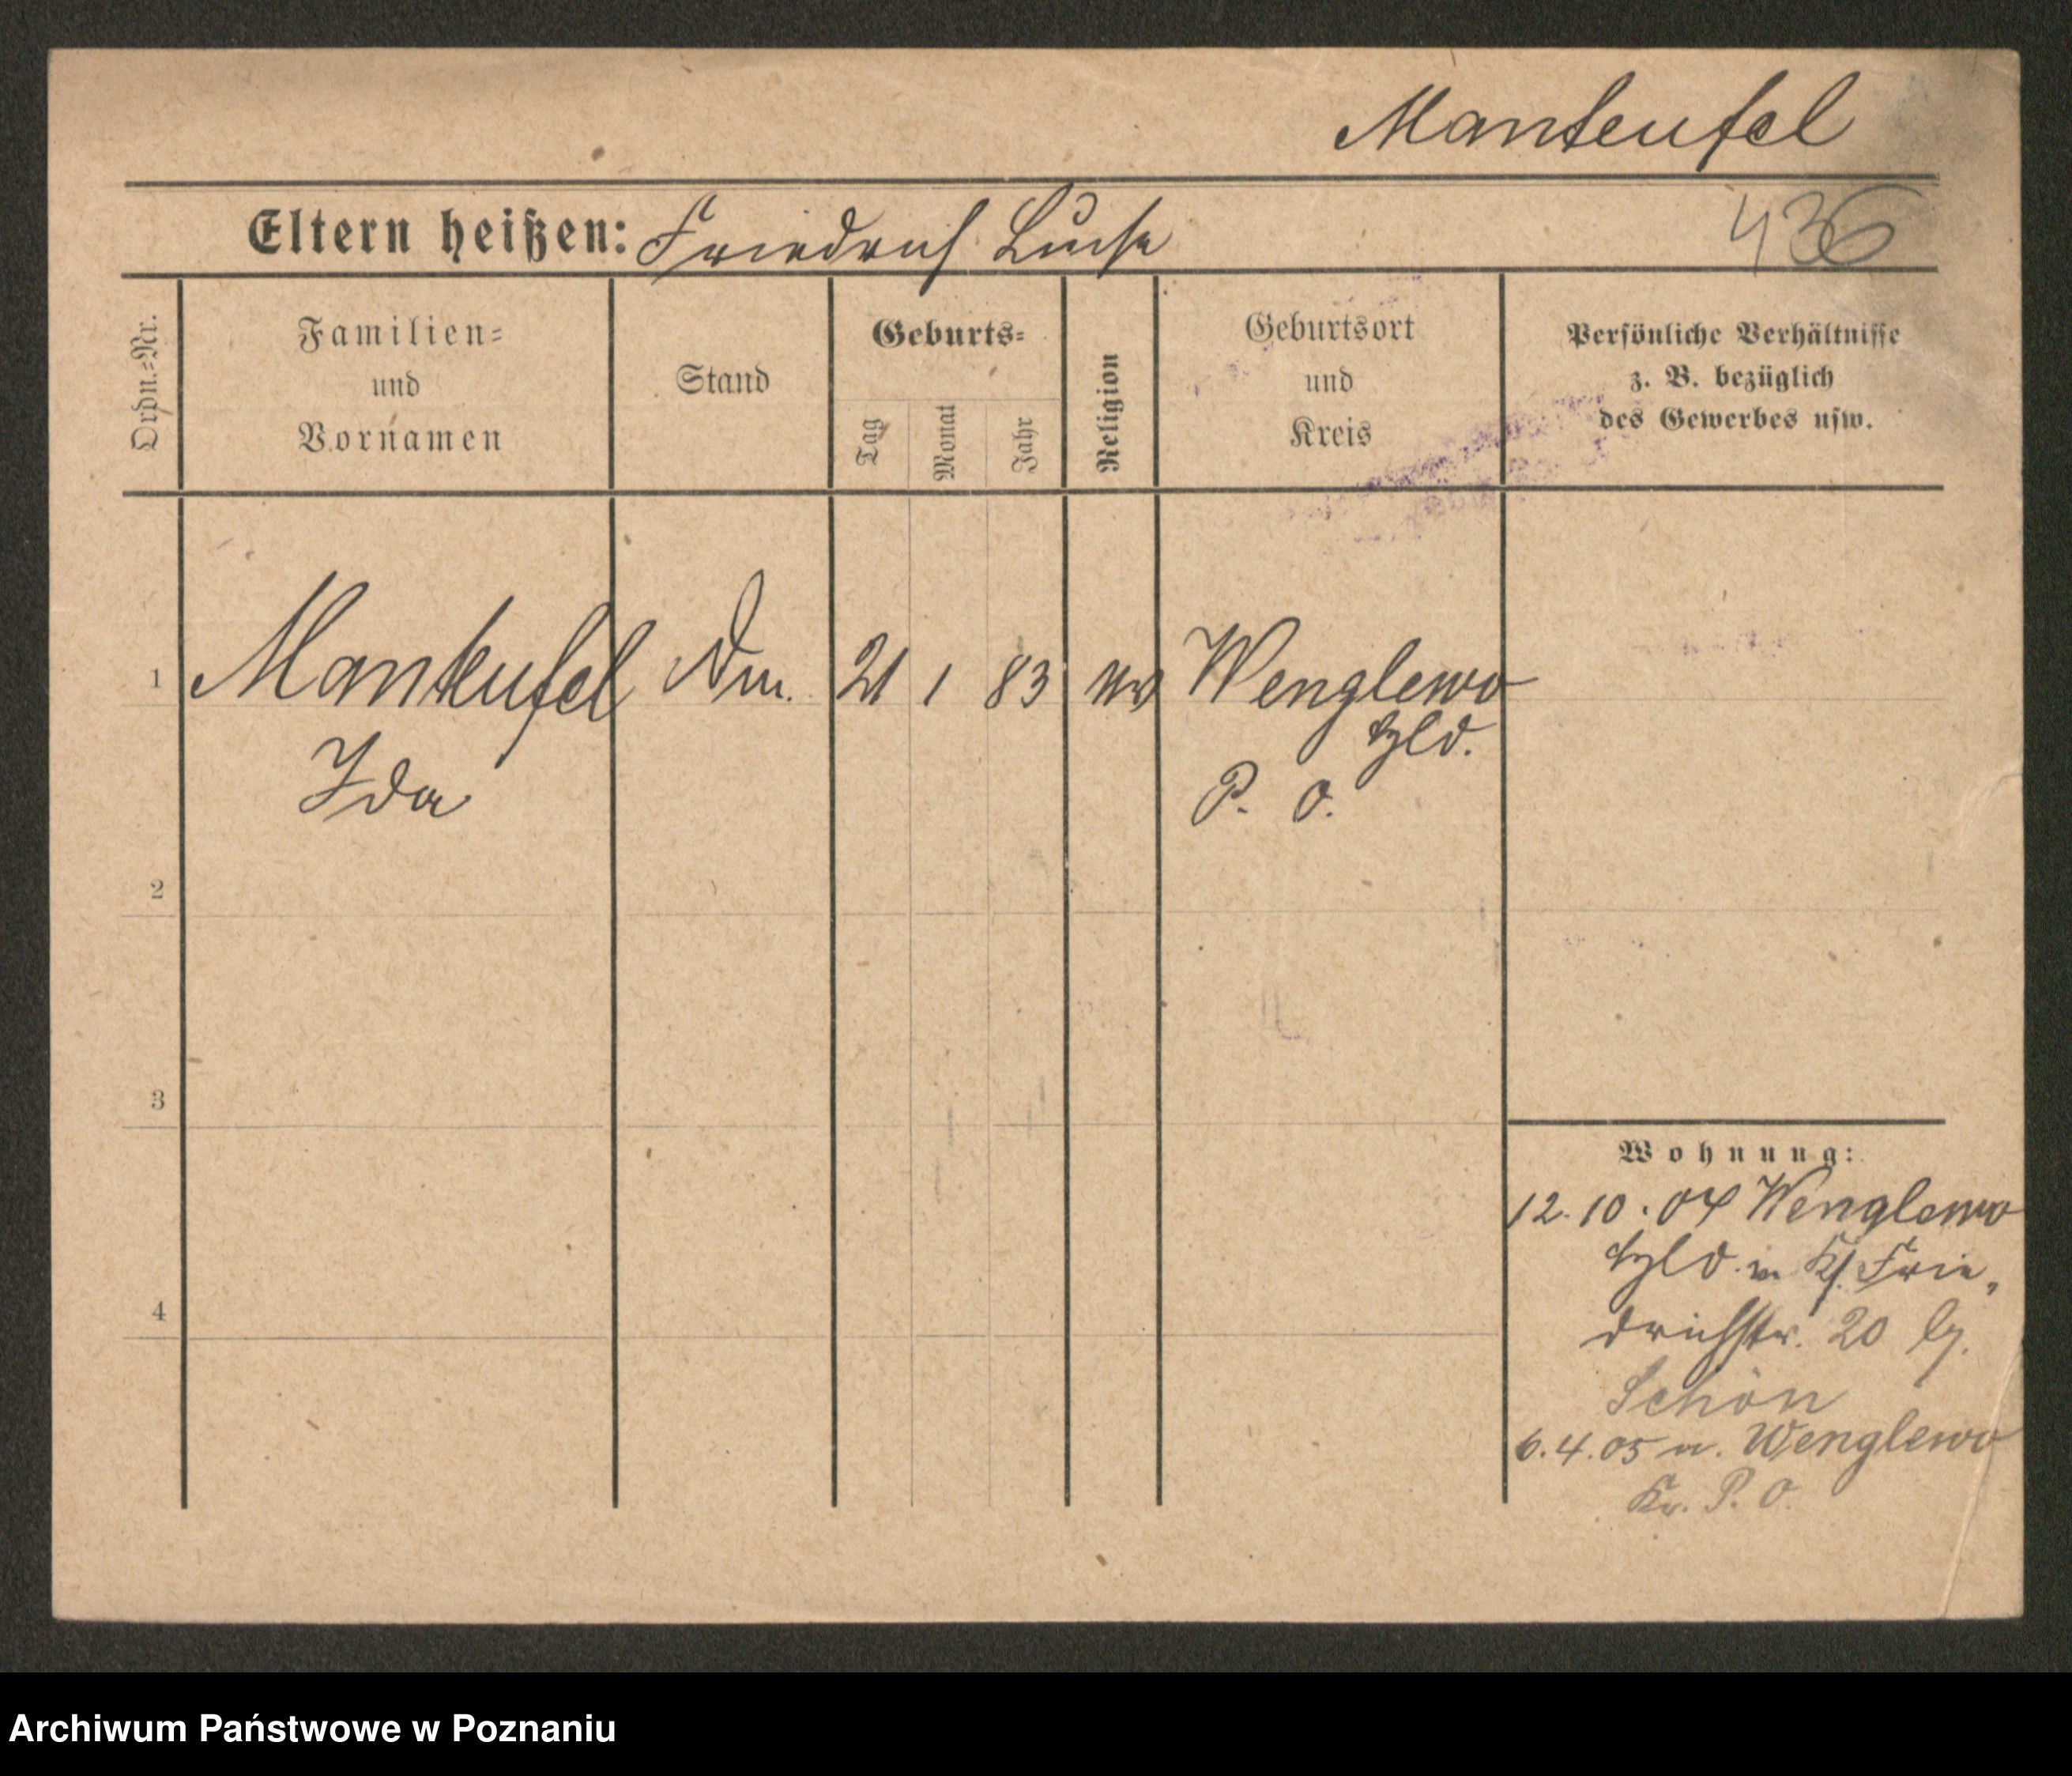 Manteufel
Eltern heißen: Friedrich Luise
436
Ordn.-Nr.
Familien-
und
Vornamen
Stand
Geburts-
Tag
Monat
Jahr
Religion
Geburtsort
und
Kreis
Persönliche Verhältnisse
z. B. bezüglich
des Gewerbes usw.
1 Manteufel 21 1 83 Wenglewo
Hld.
Ida P. O.
2
3
4
Wohnung:
12.10.04 Wenglewo
Hld. Frie-
drichstr. 20 b/.
Schön
6.4.05 n. Wenglewo
Kr. P. O.
Archiwum Państwowe w Poznaniu